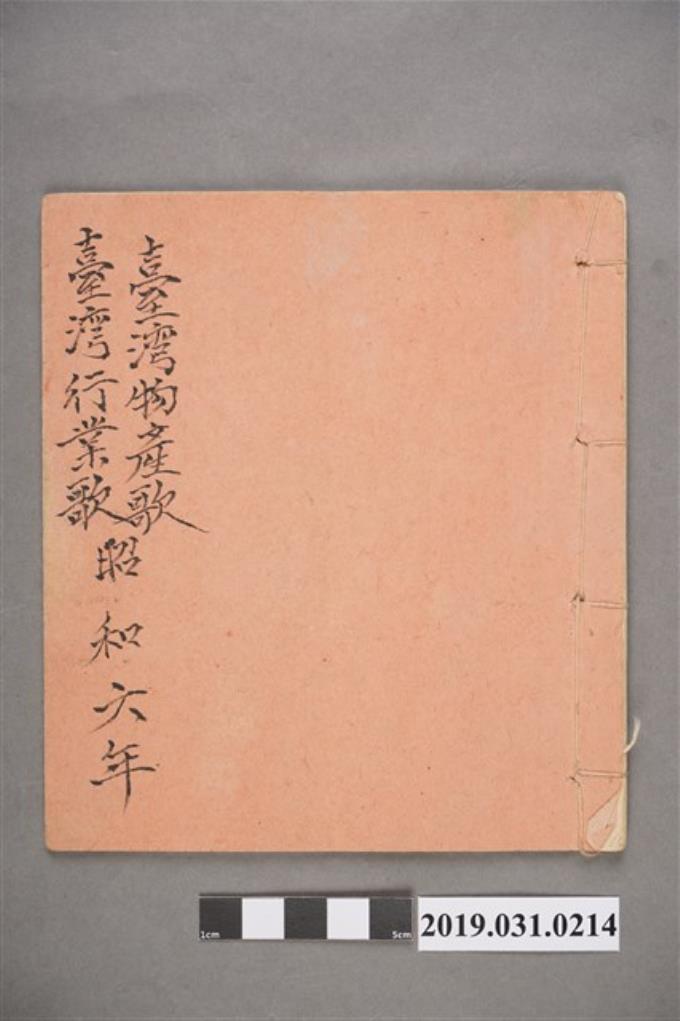 臺灣物產歌
臺灣行業歌
昭和六年
1cm
5cm
2019.031.0214